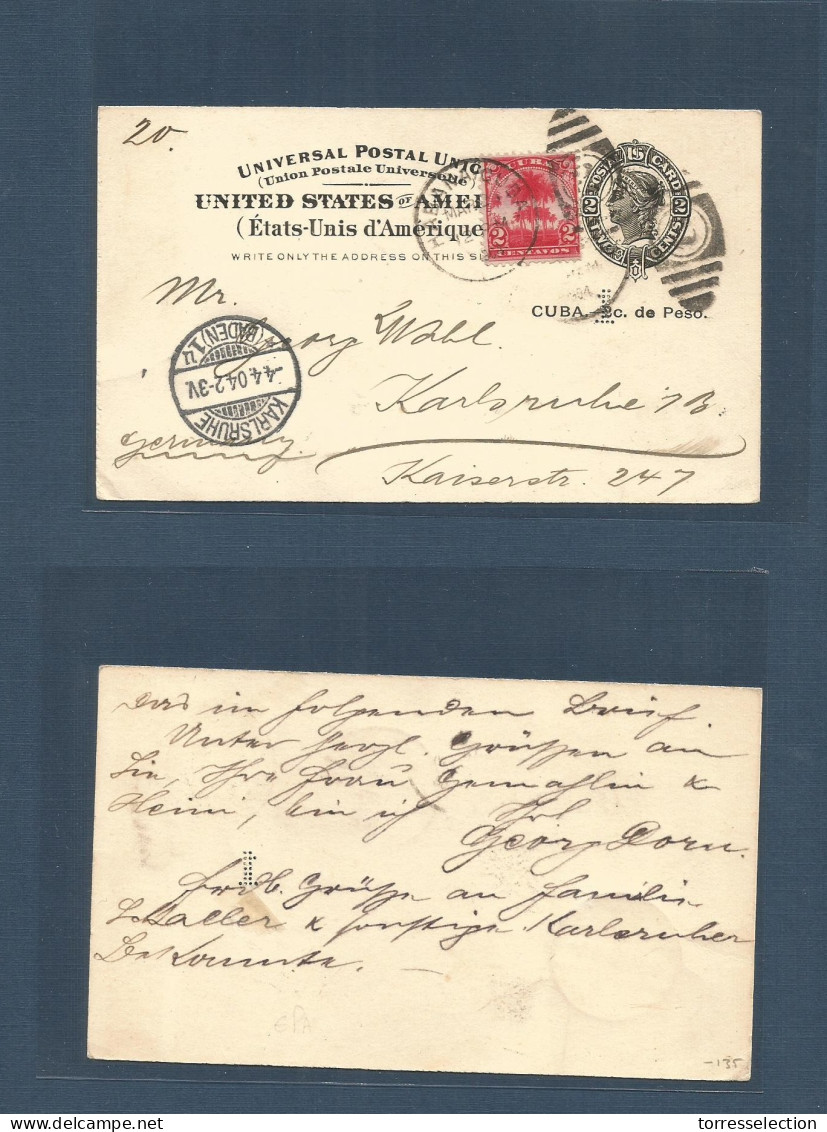 20.
UNIVERSAL POSTAL UNIO
(Union Postale Universelle)
UNITED STATES OF AMEI
(États-Unis d'Amérique
WRITE ONLY THE ADDRESS ON THIS SI
CUBA
2 2
CENTAVOS
HABANA, CUBA
MAR
POSTAL CARD
CUBA.-2c. de Peso.
Mr.
Georg Wohl.
Karlsruhe i/B.
Germany.
Kaiserstr. 247
KARLSRUHE
-4.4.04.2-3V.
(BADEN) 1
Das im folgenden Brief.
Unter herzl. Grüßen an
Sie, Ihre Frau Gemahlin &
Heini, bin ich Ihr
Georg Dorn.
Grüße an Familie
Haller & sonstige Karlsruher
Bekannte.
-135
torresselection